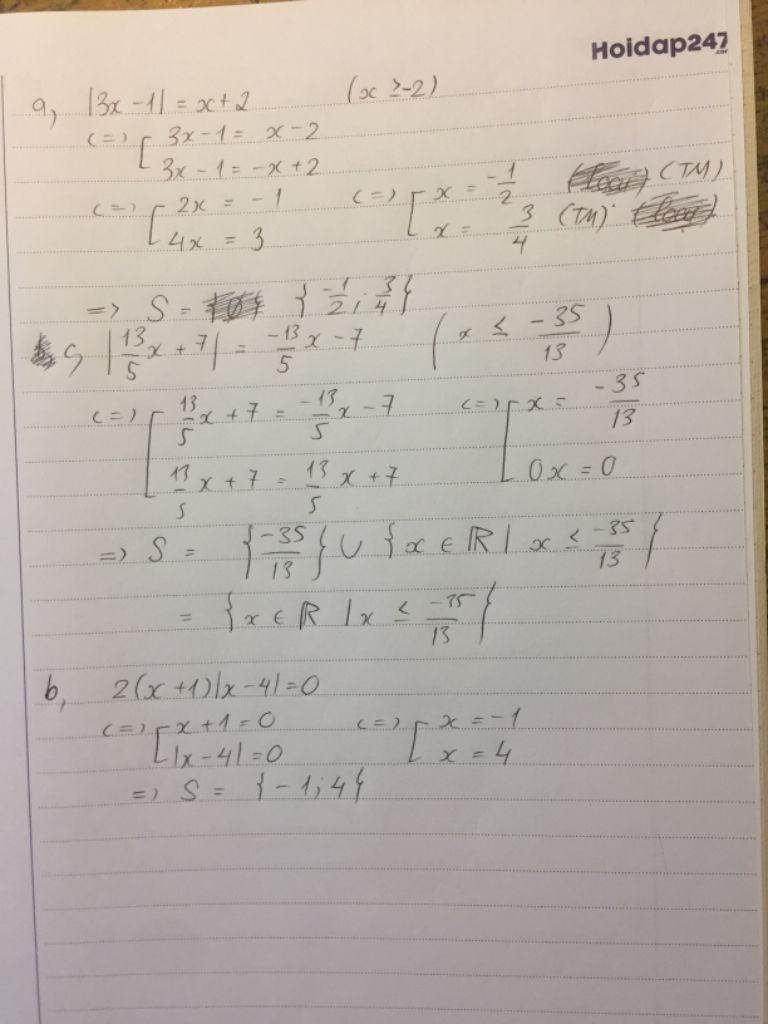 Hoidap247
.com
a, |3x - 1| = x + 2 (x ≥ -2)
<=> [ 3x - 1 = x - 2
3x - 1 = -x + 2
<=> [ 2x = -1 <=> [ x = -1/2 (TM)
4x = 3 x = 3/4 (TM)
=> S = { -1/2 ; 3/4 }
c, |13/5 x + 7| = -13/5 x - 7 ( x ≤ -35/13 )
<=> [ 13/5 x + 7 = -13/5 x - 7 <=> [ x = -35/13
13/5 x + 7 = 13/5 x + 7 0x = 0
=> S = { -35/13 } ∪ { x ∈ ℝ | x ≤ -35/13 }
= { x ∈ ℝ | x ≤ -35/13 }
b, 2(x + 1)|x - 4| = 0
<=> [ x + 1 = 0 <=> [ x = -1
|x - 4| = 0 x = 4
=> S = { -1 ; 4 }